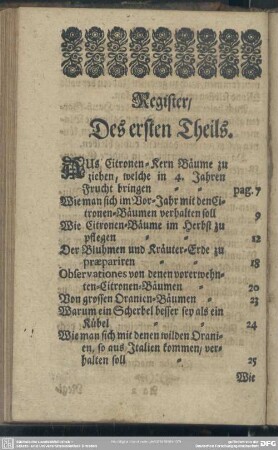 Register/
Des ersten Theils.
AUs Citronen-Kern Bäume zu
ziehen, welche in 4. Jahren
Frucht bringen pag. 7
Wie man sich im Vor-Jahr mit den Ci-
tronen-Bäumen verhalten soll 9
Wie Citronen-Bäume im Herbst zu
pflegen 12
Der Bluhmen und Kräuter-Erde zu
præpariren 18
Observationes von denen vorerwehn-
ten-Citronen-Bäumen 20
Von grossen Oranien-Bäumen 23
Warum ein Scherbel besser sey als ein
Kübel 24
Wie man sich mit denen wilden Orani-
en, so aus Italien kommen, ver-
halten soll 25
Wie